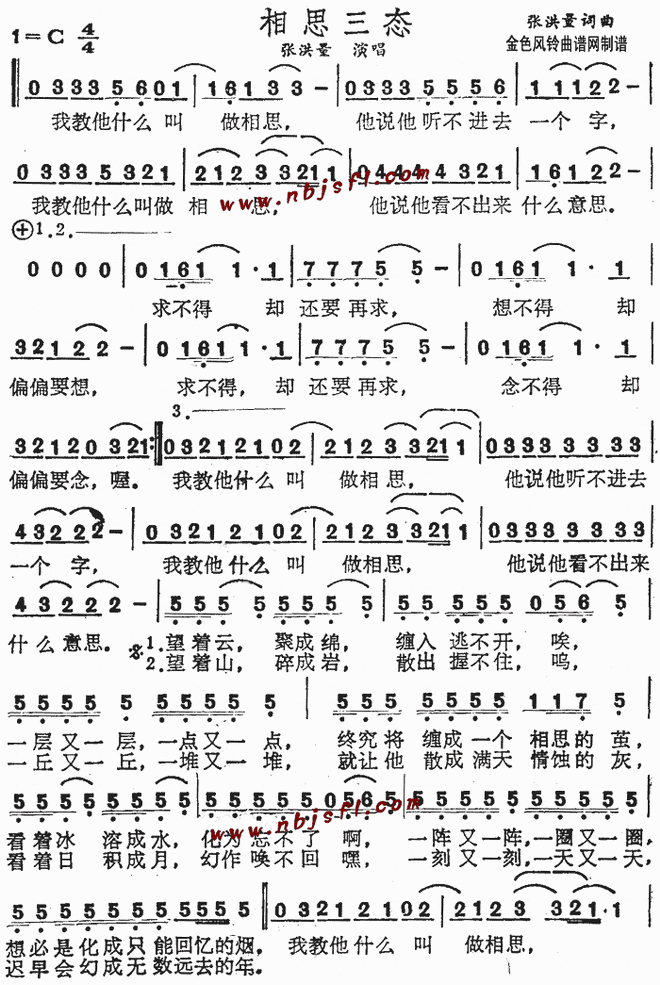 相思三态
1=C 4/4
张洪量词曲
金色风铃曲谱网制谱
张洪量 演唱
0 3 3 3 3 5 6 0 1 | 1 6 1 3 3 – | 0 3 3 3 5 5 5 6 | 1 1 1 2 2 – |
我教他什么 叫 做相思， 他说他听不进去 一个 字，
0 3 3 3 5 3 2 1 | 2 1 2 3 3 2 1 1 | 0 4 4 4 4 3 2 1 | 1 6 1 2 2 – |
我教他什么叫做 相 思， 他说他看不出来 什么意思。
www.nbjsfl.com
1.2.
0 0 0 0 | 0 1 6 1 1 · 1 | 7 7 7 5 5 – | 0 1 6 1 1 · 1 |
求不得 却 还要再求， 想不得 却
3 2 1 2 2 – | 0 1 6 1 1 · 1 | 7 7 7 5 5 – | 0 1 6 1 1 · 1 |
偏偏要想， 求不得， 却 还要再求， 念不得 却
3.
3 2 1 2 0 3 2 1 :‖ 0 3 2 1 2 1 0 2 | 2 1 2 3 3 2 1 1 | 0 3 3 3 3 3 3 3
偏偏要念，喔。 我教他什么 叫 做相思， 他说他听不进去
4 3 2 2 2 – | 0 3 2 1 2 1 0 2 | 2 1 2 3 3 2 1 1 | 0 3 3 3 3 3 3 3
一个 字， 我教他什么 叫 做相思， 他说他看不出来
4 3 2 2 2 – | 5 5 5 5 5 5 5 | 5 5 5 5 5 0 5 6 5 |
什么意思。 1.望着云， 聚成绵， 缠入 逃不开， 唉，
2.望着山， 碎成岩， 散出 握不住， 呜，
5 5 5 5 5 5 5 5 5 5 | 5 5 5 5 5 5 5 1 1 7 5 |
一层又一层，一点又一点， 终究将 缠成一个 相思的茧，
一丘又一丘，一堆又一堆， 就让他 散成满天 情蚀的灰，
5 5 5 5 5 5 5 | 5 5 5 5 5 0 5 6 5 | 5 5 5 5 5 5 5 5 5 5
看着冰 溶成水， 化为忘不了 啊， 一阵又一阵，一圈又一圈，
看着日 积成月， 幻作唤不回 嘿， 一刻又一刻，一天又一天，
www.nbjsfl.com
5 5 5 5 5 5 5 5 5 5 5 ‖ 0 3 2 1 2 1 0 2 | 2 1 2 3 3 2 1 · 1 |
想必是化成只能回忆的烟， 我教他什么 叫 做相思，
迟早会幻成无数远去的年。